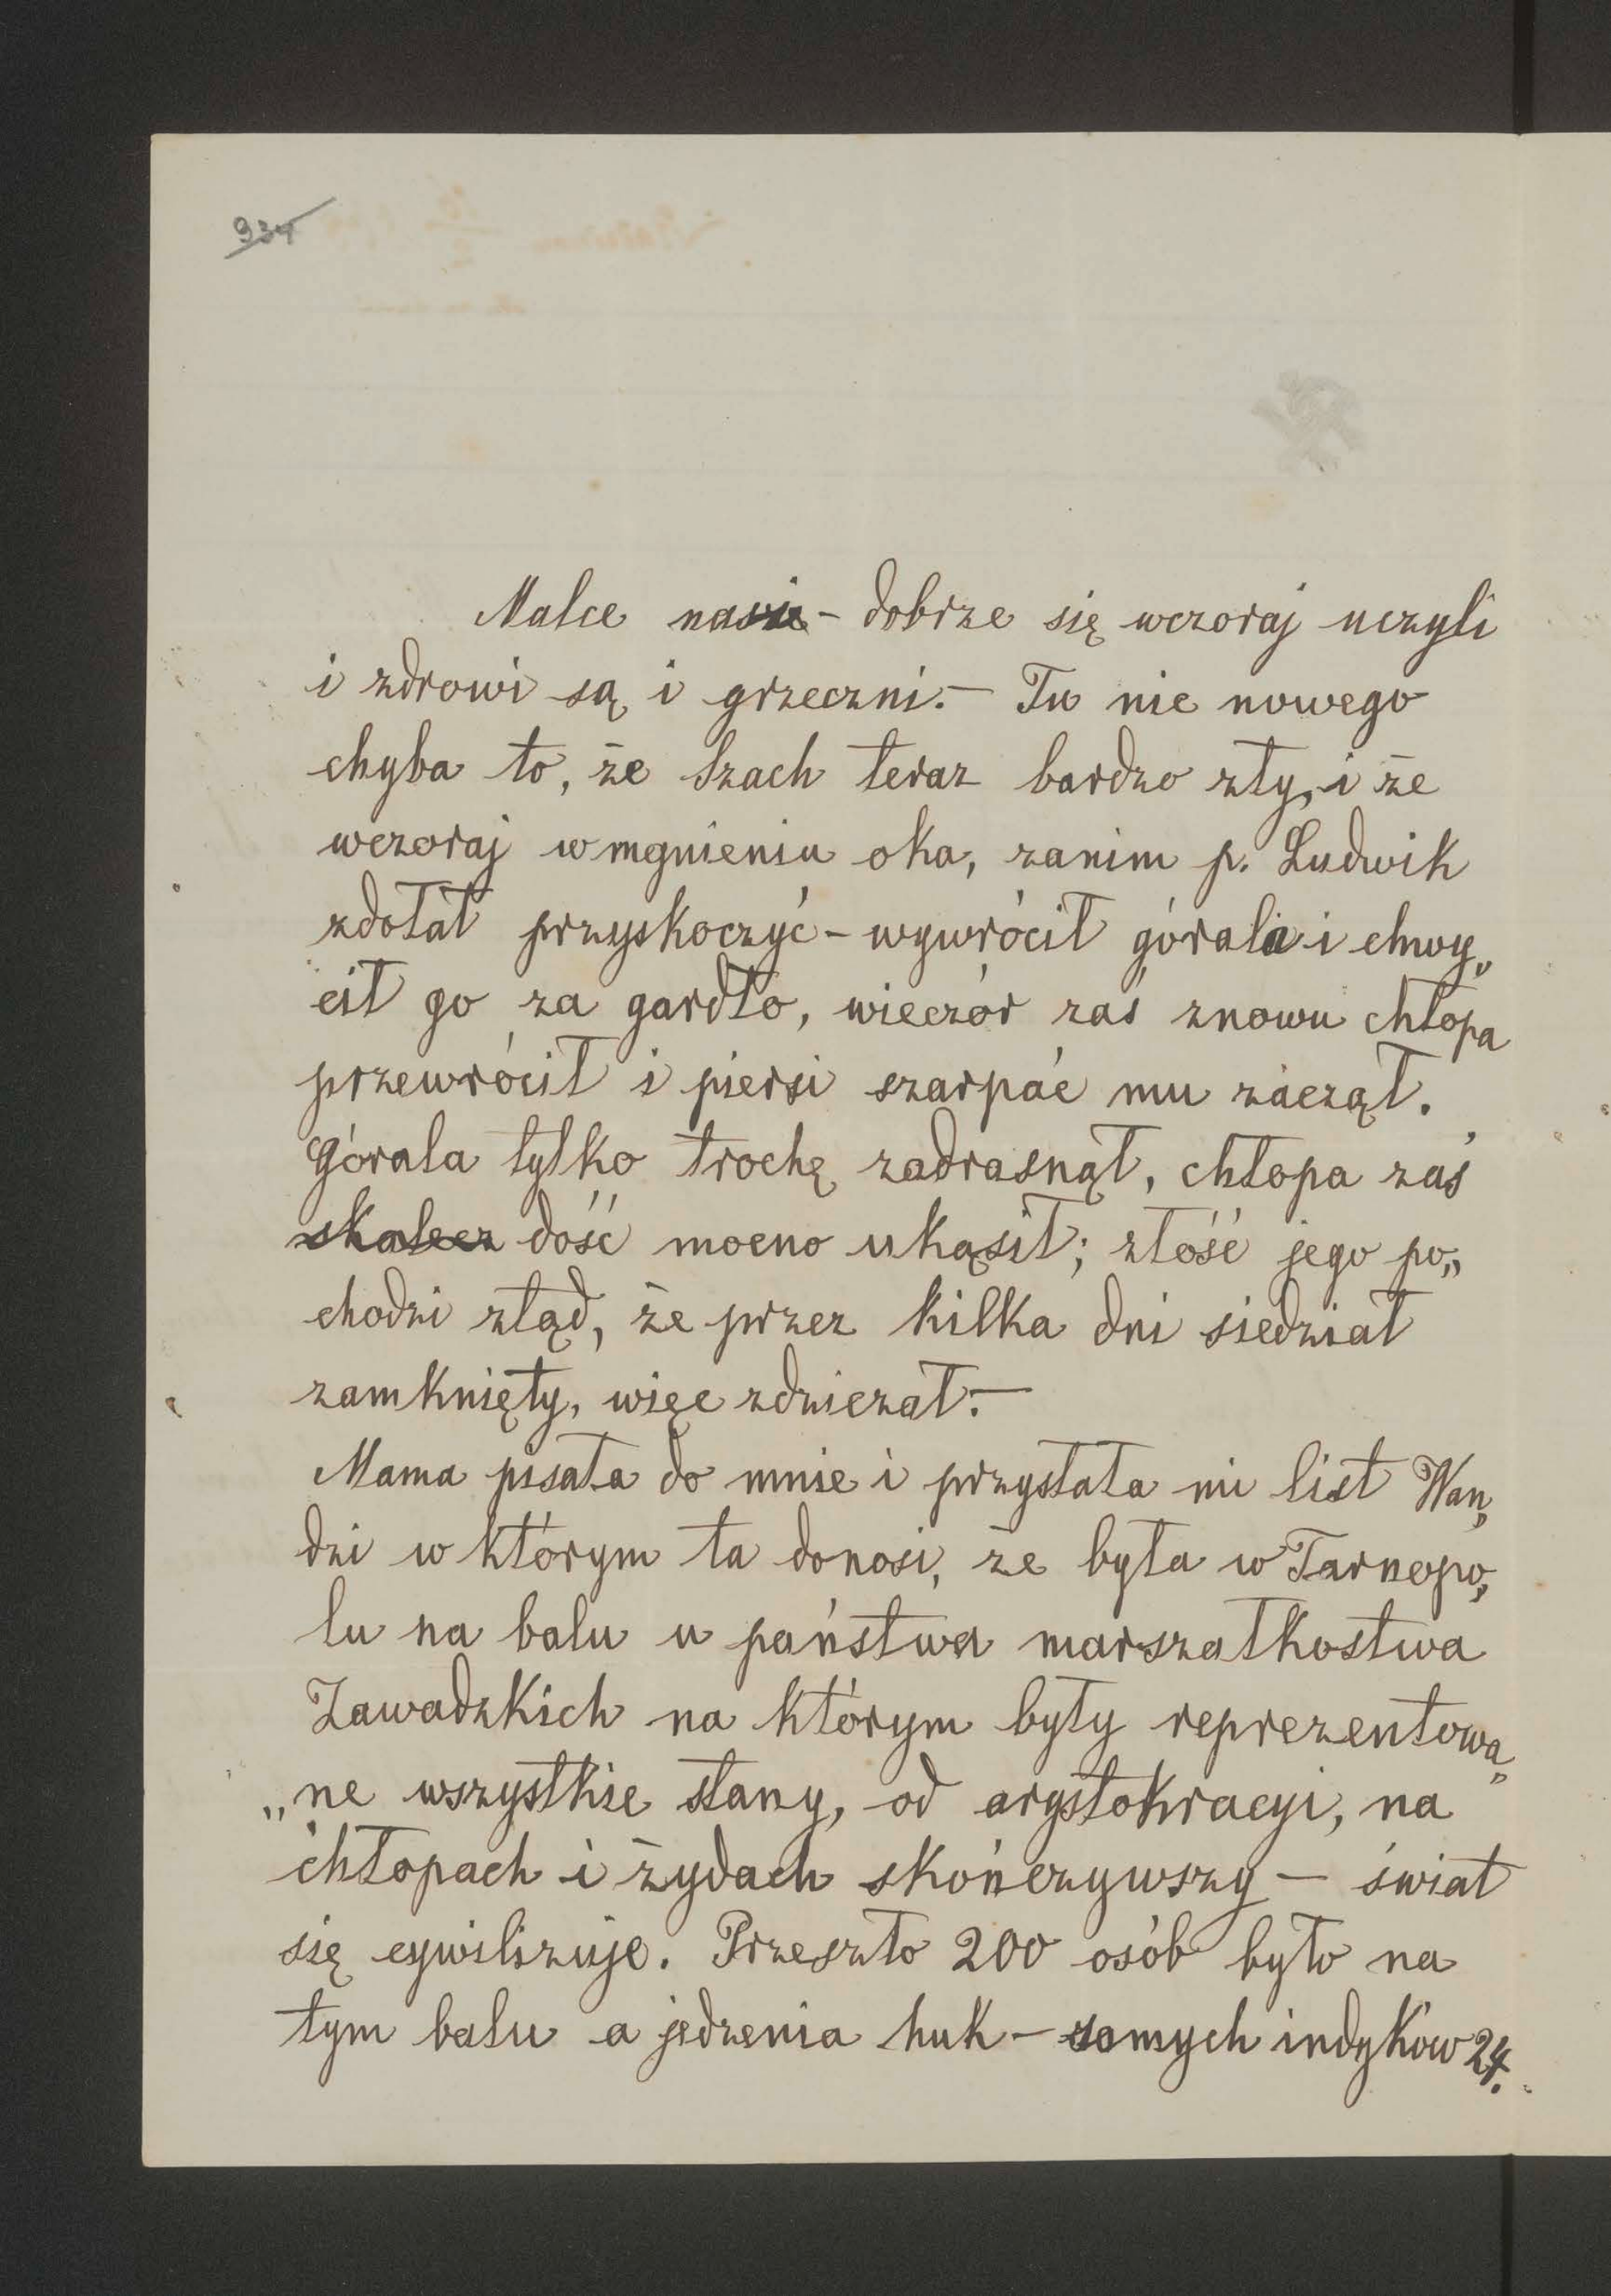 934
Malce nasze - dobrze się wczoraj uczyli
i zdrowi są i grzeczni. — Tu nic nowego
chyba to, że Szach teraz bardzo zły, i że
wczoraj w mgnieniu oka, zanim p. Ludwik
zdołał przyskoczyć - wywrócił górala i chwy„
cił go za gardło, wieczór zaś znowu chłopa
przewrócił i piersi szarpać mu zaczął.
Górala tylko trochę zadrasnął, chłopa zaś
skalecz dość mocno ukąsił; złość jego po„
chodzi ztąd, że przez kilka dni siedział
zamknięty, więc zdziczał. —
Mama pisała do mnie i przysłała mi list Wan„
dzi w którym ta donosi, że była w Tarnopo„
lu na balu u państwa marszałkostwa
Zawadzkich na którym były reprezentowa„
„ne wszystkie stany, od arystokracyi, na
chłopach i żydach skończywszy — świat
się cywilizuje. Przeszło 200 osób było na
tym balu a jedzenia huk - samych indyków 24.